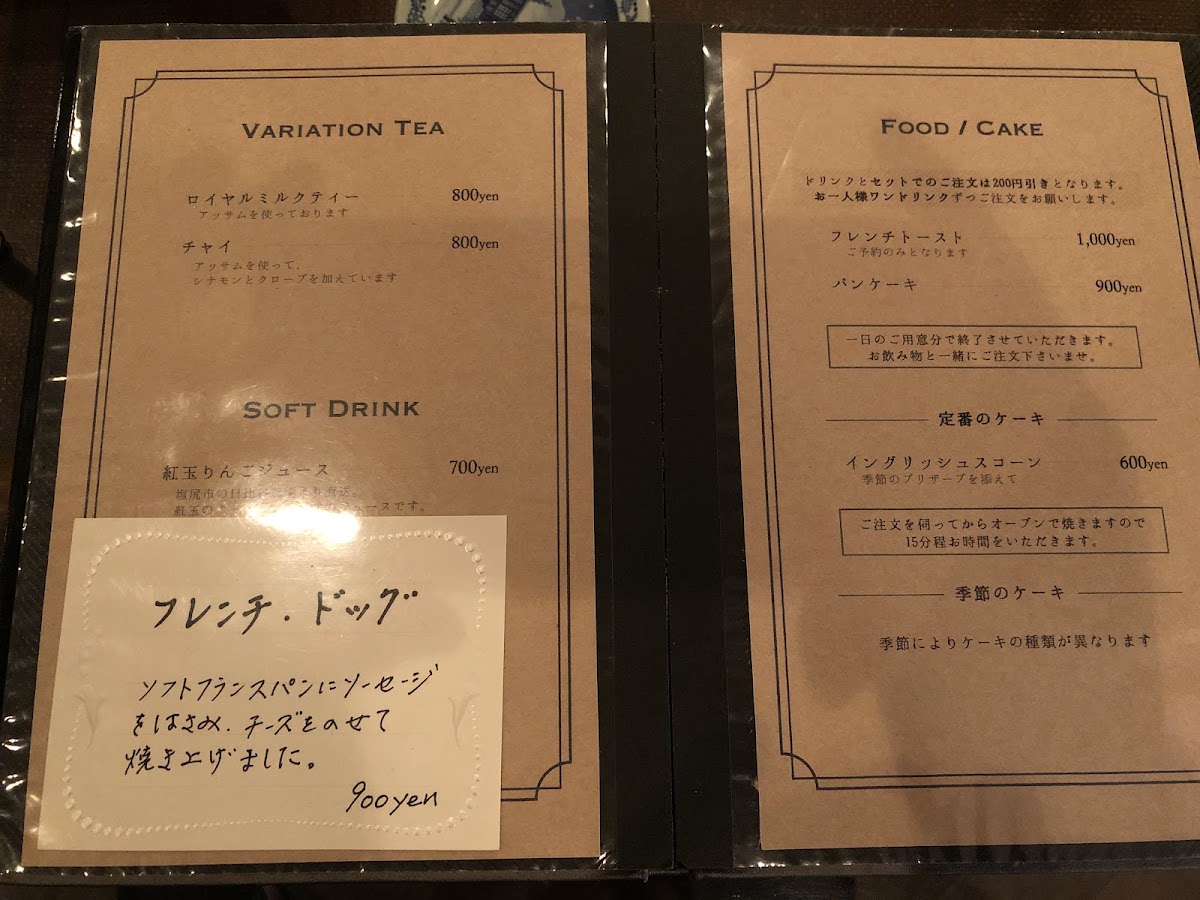 VARIATION TEA
ロイヤルミルクティー 800yen
アッサムを使っております
チャイ 800yen
アッサムを使って、
シナモンとクローブを加えています
SOFT DRINK
紅玉りんごジュース 700yen
塩尻市の
紅玉の ジュースです。
フレンチ・ドッグ
ソフトフランスパンにソーセージ
をはさみ、チーズをのせて
焼き上げました。
900yen
FOOD / CAKE
ドリンクとセットでのご注文は200円引きとなります。
お一人様ワンドリンクずつご注文をお願いします。
フレンチトースト 1,000yen
ご予約のみとなります
パンケーキ 900yen
一日のご用意分で終了させていただきます。
お飲み物と一緒にご注文下さいませ。
定番のケーキ
イングリッシュスコーン 600yen
季節のプリザーブを添えて
ご注文を伺ってからオーブンで焼きますので
15分程お時間をいただきます。
季節のケーキ
季節によりケーキの種類が異なります